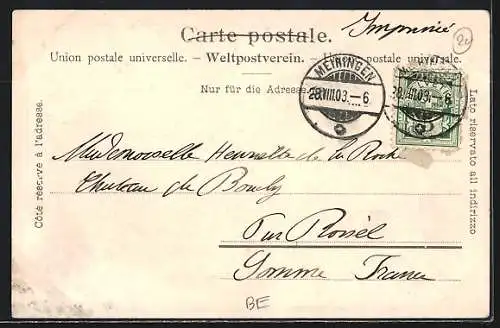 Carte postale.
Imprimé
20
Union postale universelle. - Weltpostverein. - Unione postale universale.
Nur für die Adresse.
MEIRINGEN
28.VIII.03.-6
28.VIII.03.-6
Côté réservé à l'adresse.
Lato riservato all indirizzo
Mademoiselle Henriette de la Roche
Chateau de
Par Roisel
Somme France
BE